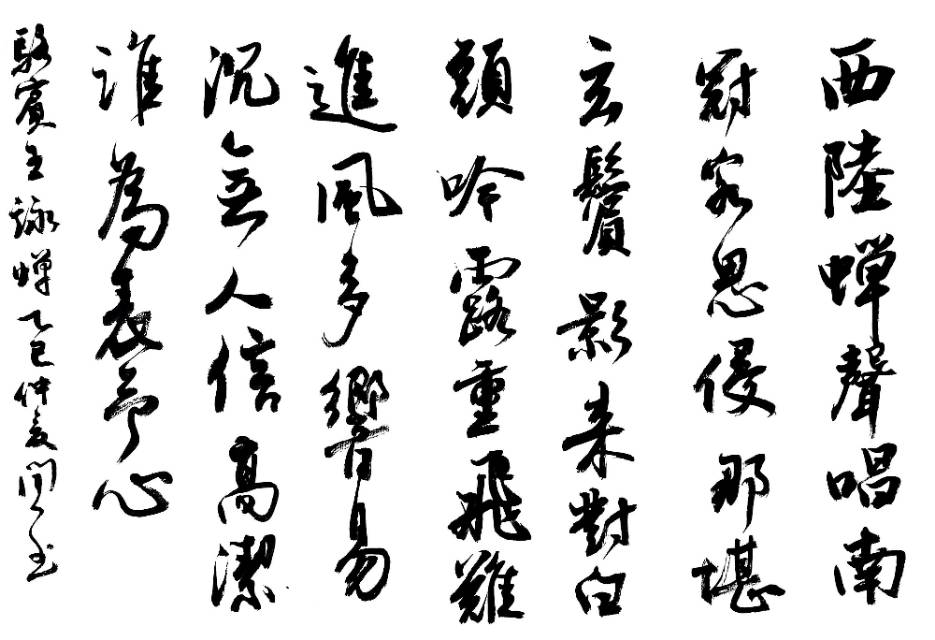 西陸蟬聲唱南
冠客思侵那堪
玄鬢影来對白
頭吟露重飛難
進風多響易
沉無人信高潔
誰為表予心
駱賓王詠蟬乙巳仲夏